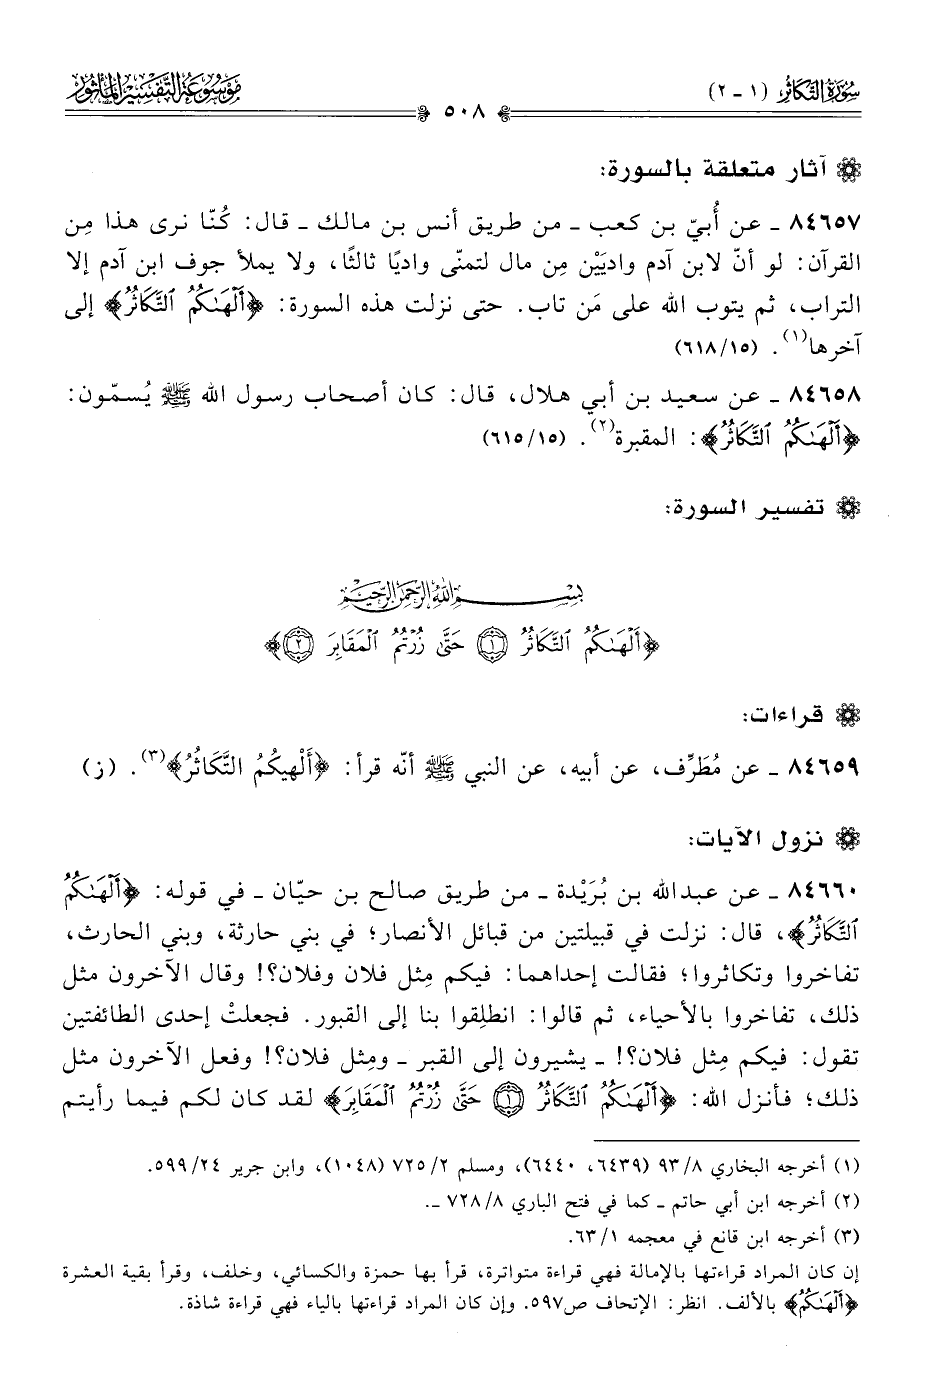 سُورَةُ التَّكَاثُرِ (١ - ٢)
مَوْسُوعَةُ التَّفْسِيرِ المَأْثُورِ
٥٠٨
آثار متعلقة بالسورة:
٨٤٦٥٧ ـ عن أُبيّ بن كعب ـ من طريق أنس بن مالك ـ قال: كُنّا نرى هذا مِن
القرآن: لو أنّ لابن آدم واديَيْن مِن مال لتمنّى واديًا ثالثًا، ولا يملأ جوف ابن آدم إلا
التراب، ثم يتوب الله على مَن تاب. حتى نزلت هذه السورة: ﴿أَلْهَىٰكُمُ ٱلتَّكَاثُرُ﴾ إلى
آخرها(١). (٦١٨/١٥)
٨٤٦٥٨ ـ عن سعيد بن أبي هلال، قال: كان أصحاب رسول الله ﷺ يُسمّون:
﴿أَلْهَىٰكُمُ ٱلتَّكَاثُرُ﴾: المقبرة(٢). (٦١٥/١٥)
تفسير السورة:
بِسْمِ اللَّهِ الرَّحْمَنِ الرَّحِيمِ
﴿أَلْهَىٰكُمُ ٱلتَّكَاثُرُ ١ حَتَّىٰ زُرْتُمُ ٱلْمَقَابِرَ ٢﴾
قراءات:
٨٤٦٥٩ ـ عن مُطَرِّف، عن أبيه، عن النبي ﷺ أنّه قرأ: ﴿أَلْهيكُمُ التَّكَاثُرُ﴾(٣). (ز)
نزول الآيات:
٨٤٦٦٠ ـ عن عبدالله بن بُرَيْدة ـ من طريق صالح بن حيّان ـ في قوله: ﴿أَلْهَىٰكُمُ
ٱلتَّكَاثُرُ﴾، قال: نزلت في قبيلتين من قبائل الأنصار؛ في بني حارثة، وبني الحارث،
تفاخروا وتكاثروا؛ فقالت إحداهما: فيكم مِثل فلان وفلان؟! وقال الآخرون مثل
ذلك، تفاخروا بالأحياء، ثم قالوا: انطلِقوا بنا إلى القبور. فجعلتْ إحدى الطائفتين
تقول: فيكم مِثل فلان؟! ـ يشيرون إلى القبر ـ ومِثل فلان؟! وفعل الآخرون مثل
ذلك؛ فأنزل الله: ﴿أَلْهَىٰكُمُ ٱلتَّكَاثُرُ ١ حَتَّىٰ زُرْتُمُ ٱلْمَقَابِرَ﴾ لقد كان لكم فيما رأيتم
(١) أخرجه البخاري ٩٣/٨ (٦٤٣٩، ٦٤٤٠)، ومسلم ٧٢٥/٢ (١٠٤٨)، وابن جرير ٥٩٩/٢٤.
(٢) أخرجه ابن أبي حاتم ـ كما في فتح الباري ٧٢٨/٨ ـ.
(٣) أخرجه ابن قانع في معجمه ٦٣/١.
إن كان المراد قراءتها بالإمالة فهي قراءة متواترة، قرأ بها حمزة والكسائي، وخلف، وقرأ بقية العشرة
﴿أَلْهَىٰكُمُ﴾ بالألف. انظر: الإتحاف ص٥٩٧. وإن كان المراد قراءتها بالياء فهي قراءة شاذة.